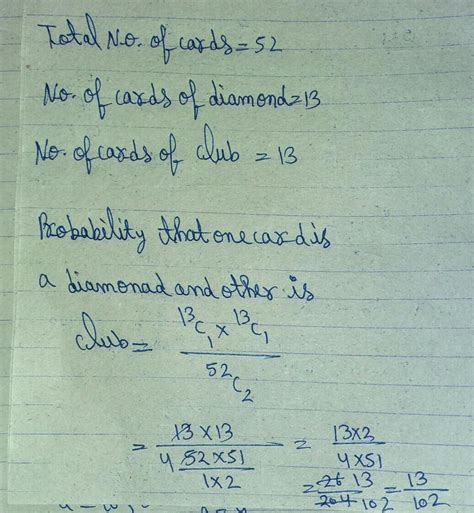 Total No. of cards = 52
No. of cards of diamond = 13
No. of cards of club = 13
Probability that one card is
a diamonad and other is
club = 13C1 x 13C1
52C2
= 13 x 13 = 13x2
4 52 x 51 4 x 51
1 x 2 = 26 13 = 13
204 102 102